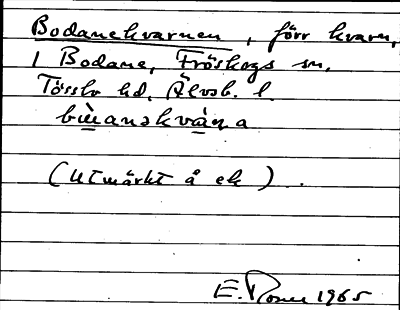 Bodanekvarnen, förr kvarn,
i Bodane, Fröskogs sn,
Tössbo hd. Älvsb. l.
(Utmärkt å ek).
E. Rosén 1965